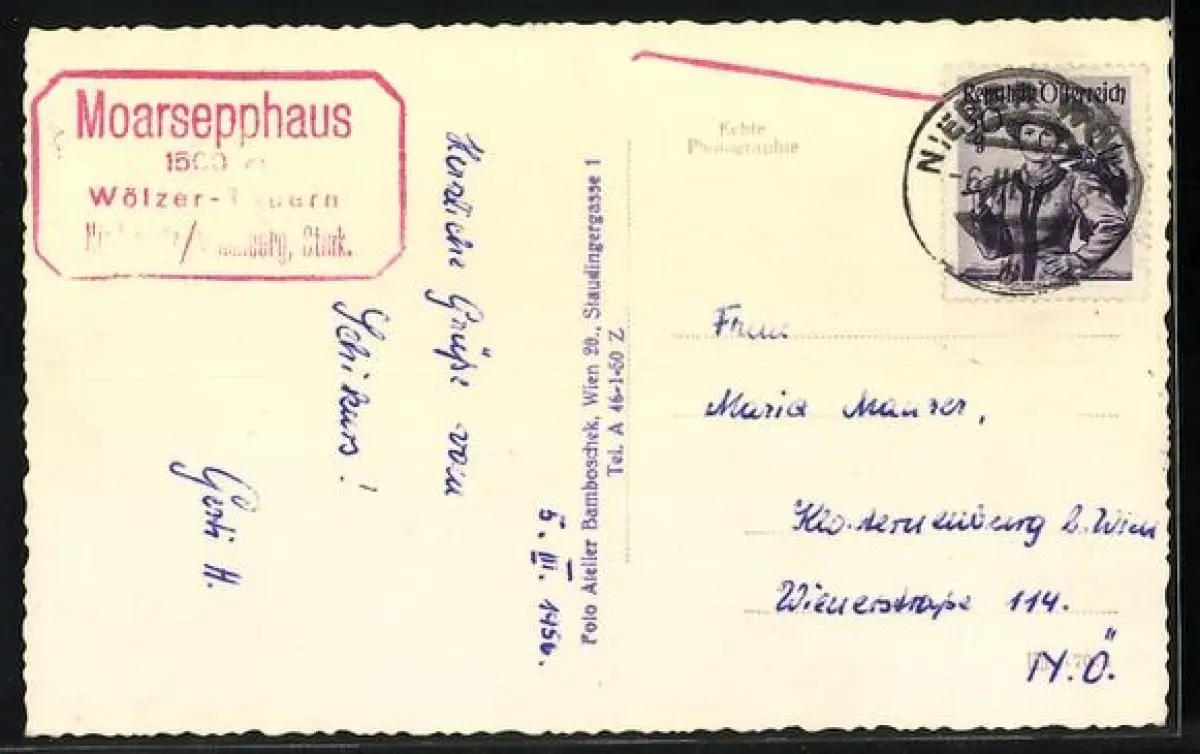 Moarsepphaus
1500 m
Wölzer-Tauern
Stmk.
Herzliche Grüße vom
Schikurs!
Gerti H.
5. III. 1956.
Foto Atelier Bamboschek, Wien 20., Staudingergasse 1
Tel. A 46-1-60 Z
Echte
Photographie
Republik Österreich
NIEDER
Frau
Maria Maurer,
Klosterneuburg b. Wien
Wienerstraße 114.
N.Ö.